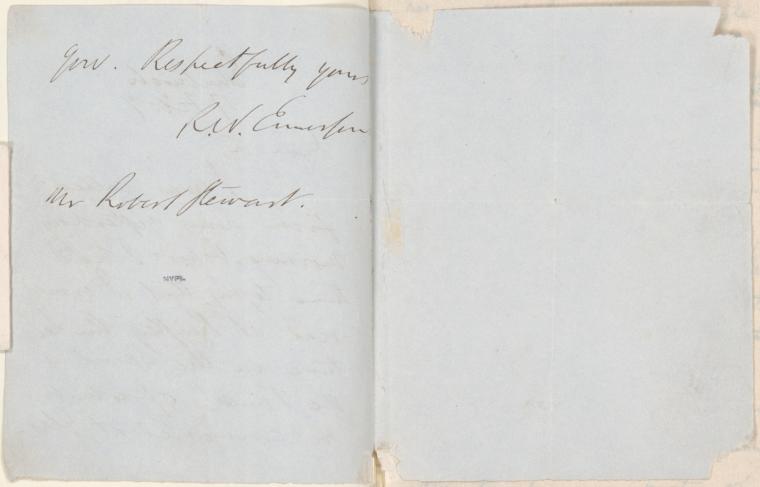 you. Respectfully yours
R.W. Emerson
Mr Robert Stewart.
NYPL